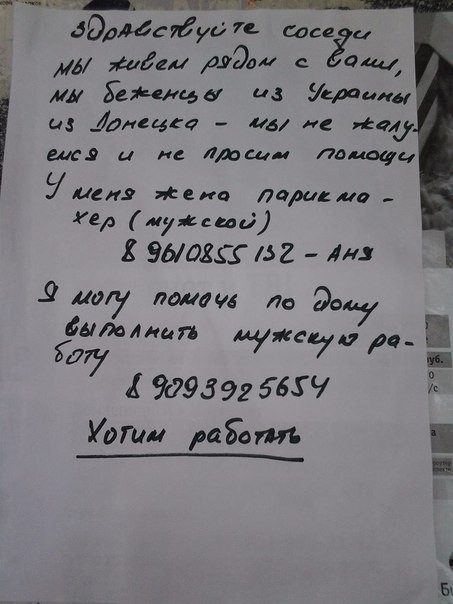 Здравствуйте соседи
мы живем рядом с вами,
мы беженцы из Украины
из Донецка - мы не жалу-
емся и не просим помощи
У меня жена парикма-
хер (мужской)
8 9610855132 - Аня
Я могу помочь по дому
выполнить мужскую ра-
боту
8 9093925654
Хотим работать
уб.